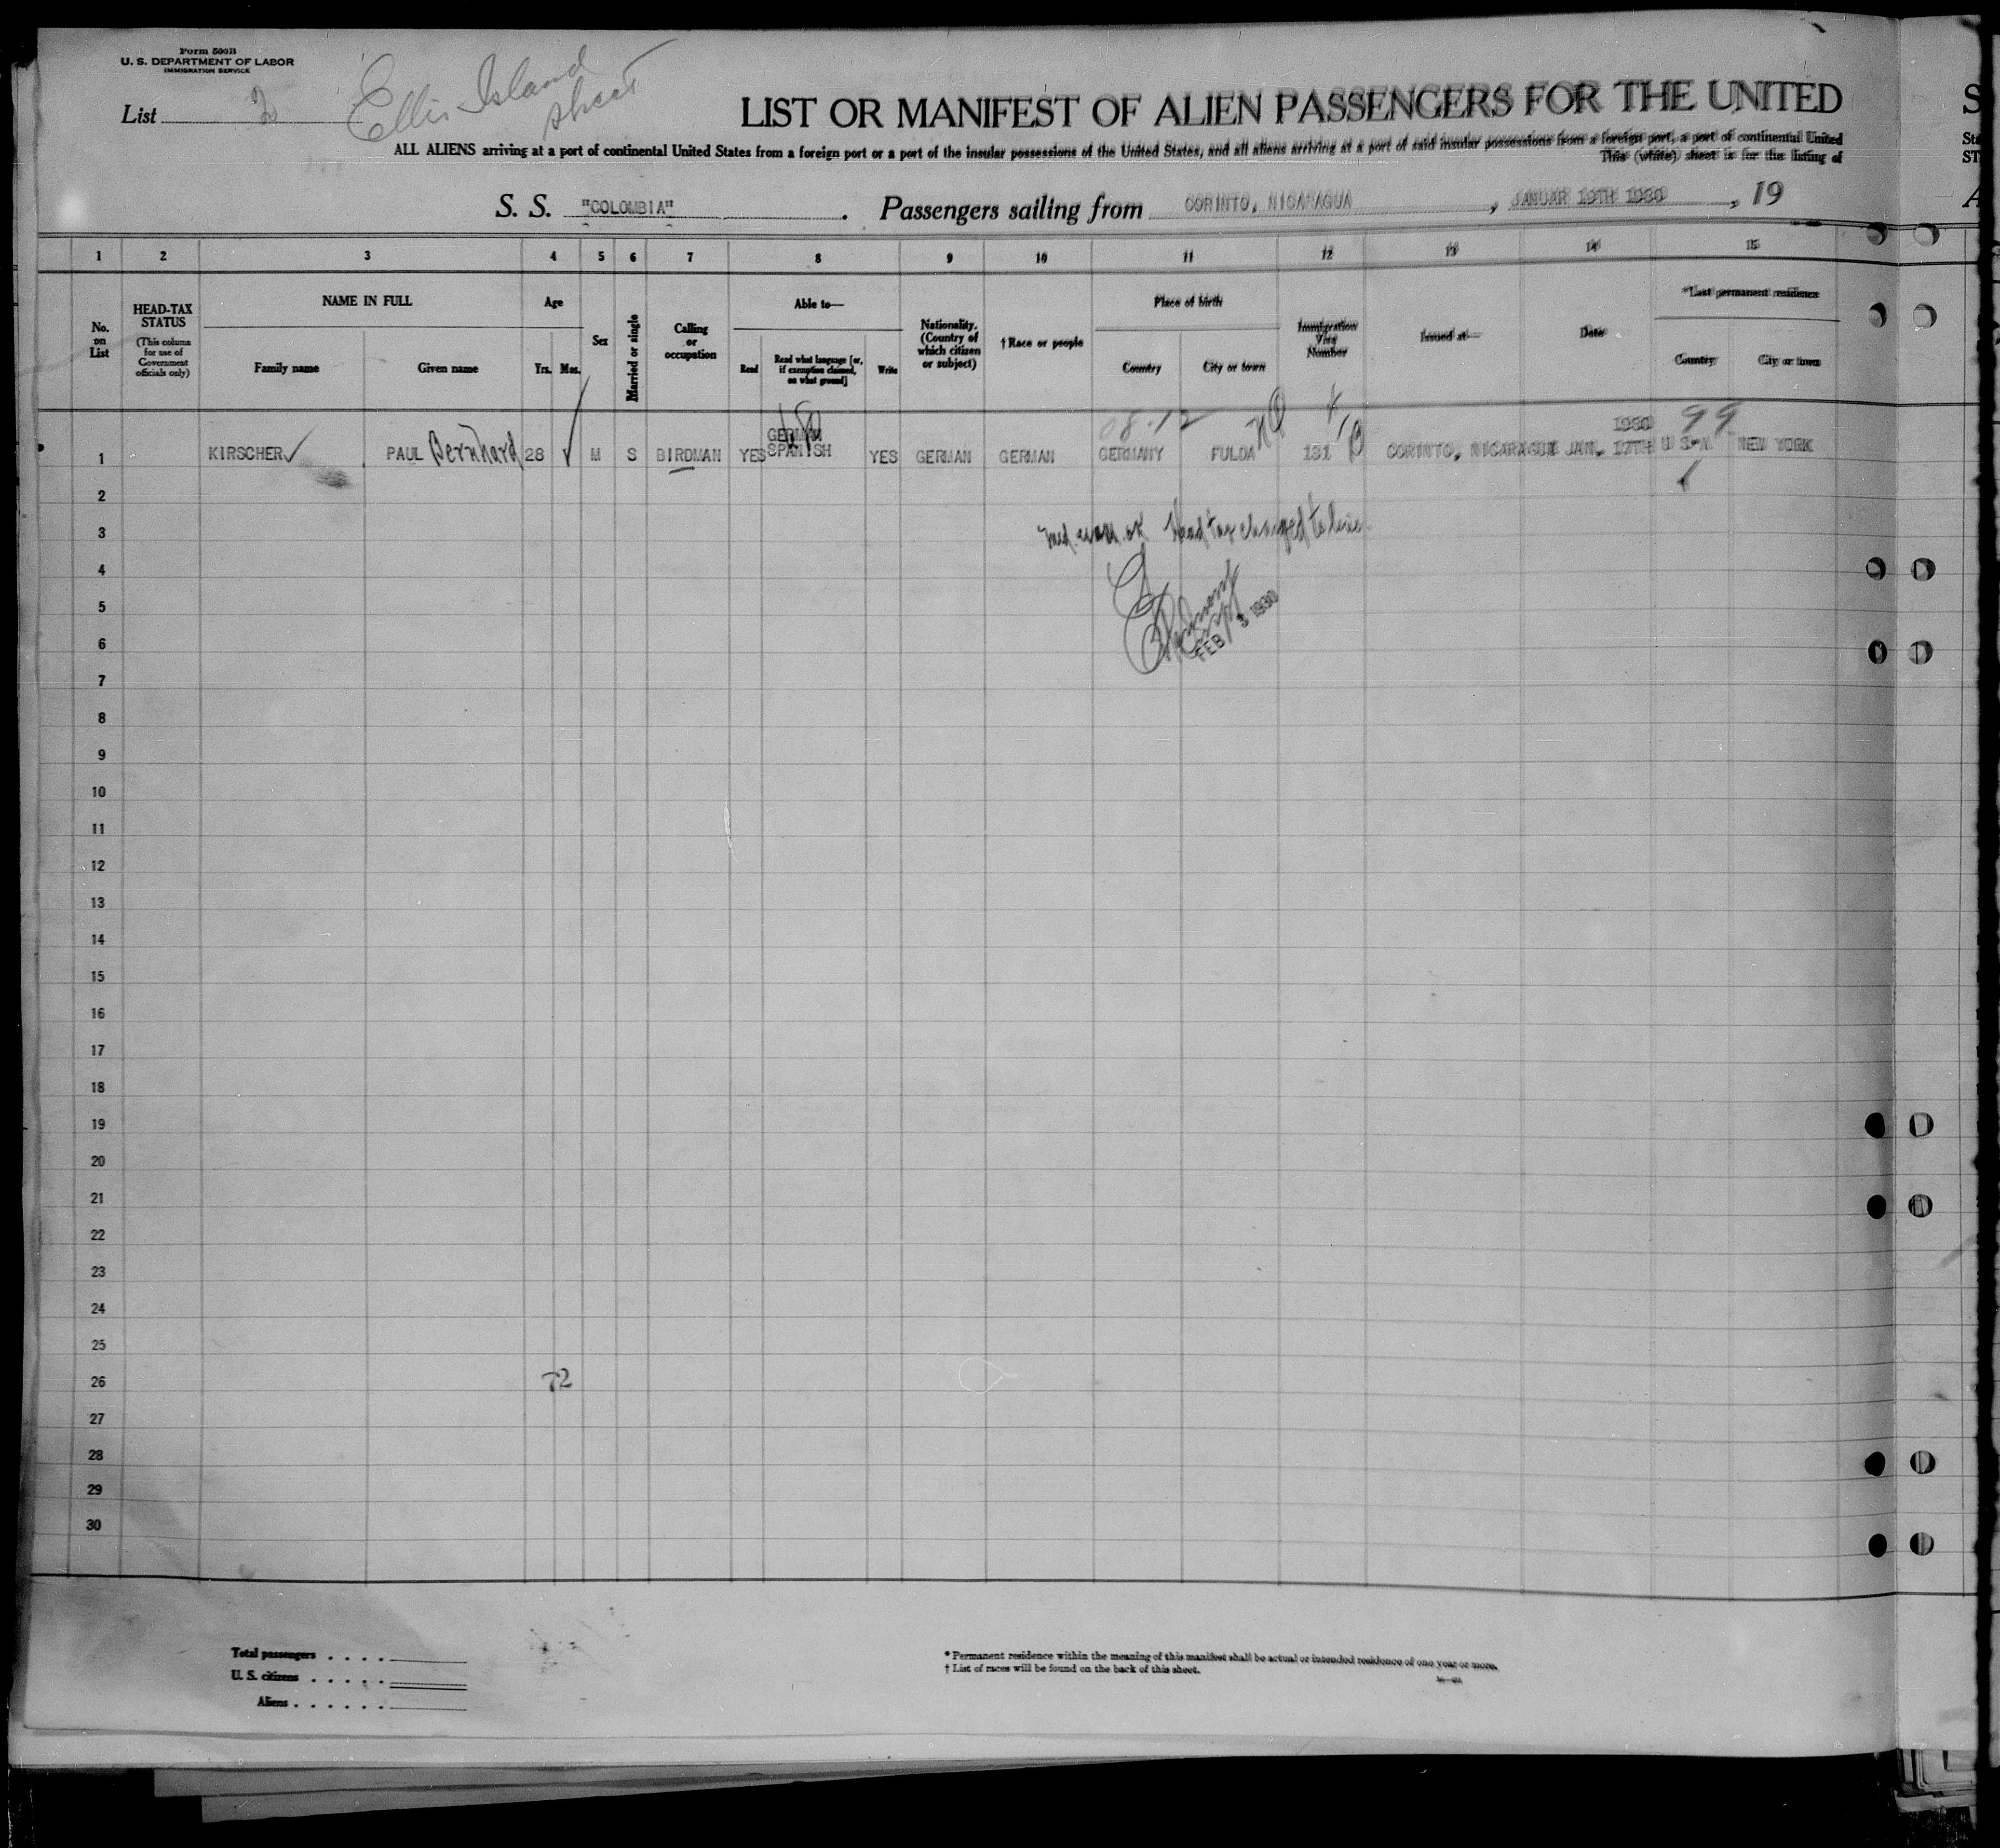 Form 500B
U. S. DEPARTMENT OF LABOR
IMMIGRATION SERVICE
List 2
Ellis Island
sheet
LIST OR MANIFEST OF ALIEN PASSENGERS FOR THE UNITED
ALL ALIENS arriving at a port of continental United States from a foreign port or a port of the insular possessions of the United States, and all aliens arriving at a port of said insular possessions from a foreign port, a port of continental United
This (white) sheet is for the listing of
S. S. "COLOMBIA" . Passengers sailing from CORINTO, NICARAGUA , JANUAR 19TH 1930 , 19
1 2 3 4 5 6 7 8 9 10 11 12 13 14 15
No. on List
HEAD-TAX STATUS
(This column for use of Government officials only)
NAME IN FULL
Family name Given name
Age
Yrs. Mos.
Sex
Married or single
Calling or occupation
Able to—
Read
Read what language [or, if exemption claimed, on what ground]
Write
Nationality. (Country of which citizen or subject)
† Race or people
Place of birth
Country City or town
Immigration Visa Number
Issued at—
Date
*Last permanent residence
Country City or town
08.12 1930 99
1 KIRSCHER PAUL Bernhard 28 M S BIRDMAN YES GERMAN SPANISH YES GERMAN GERMAN GERMANY FULDA 131 CORINTO, NICARAGUA JAN. 17TH U S A NEW YORK
2
3 Med. exam ok Head tax charged to line
4
5
FEB 3 1930
6
7
8
9
10
11
12
13
14
15
16
17
18
19
20
21
22
23
24
25
26 72
27
28
29
30
Total passengers . . . .
U. S. citizens . . . . .
Aliens . . . . . .
* Permanent residence within the meaning of this manifest shall be actual or intended residence of one year or more.
† List of races will be found on the back of this sheet.